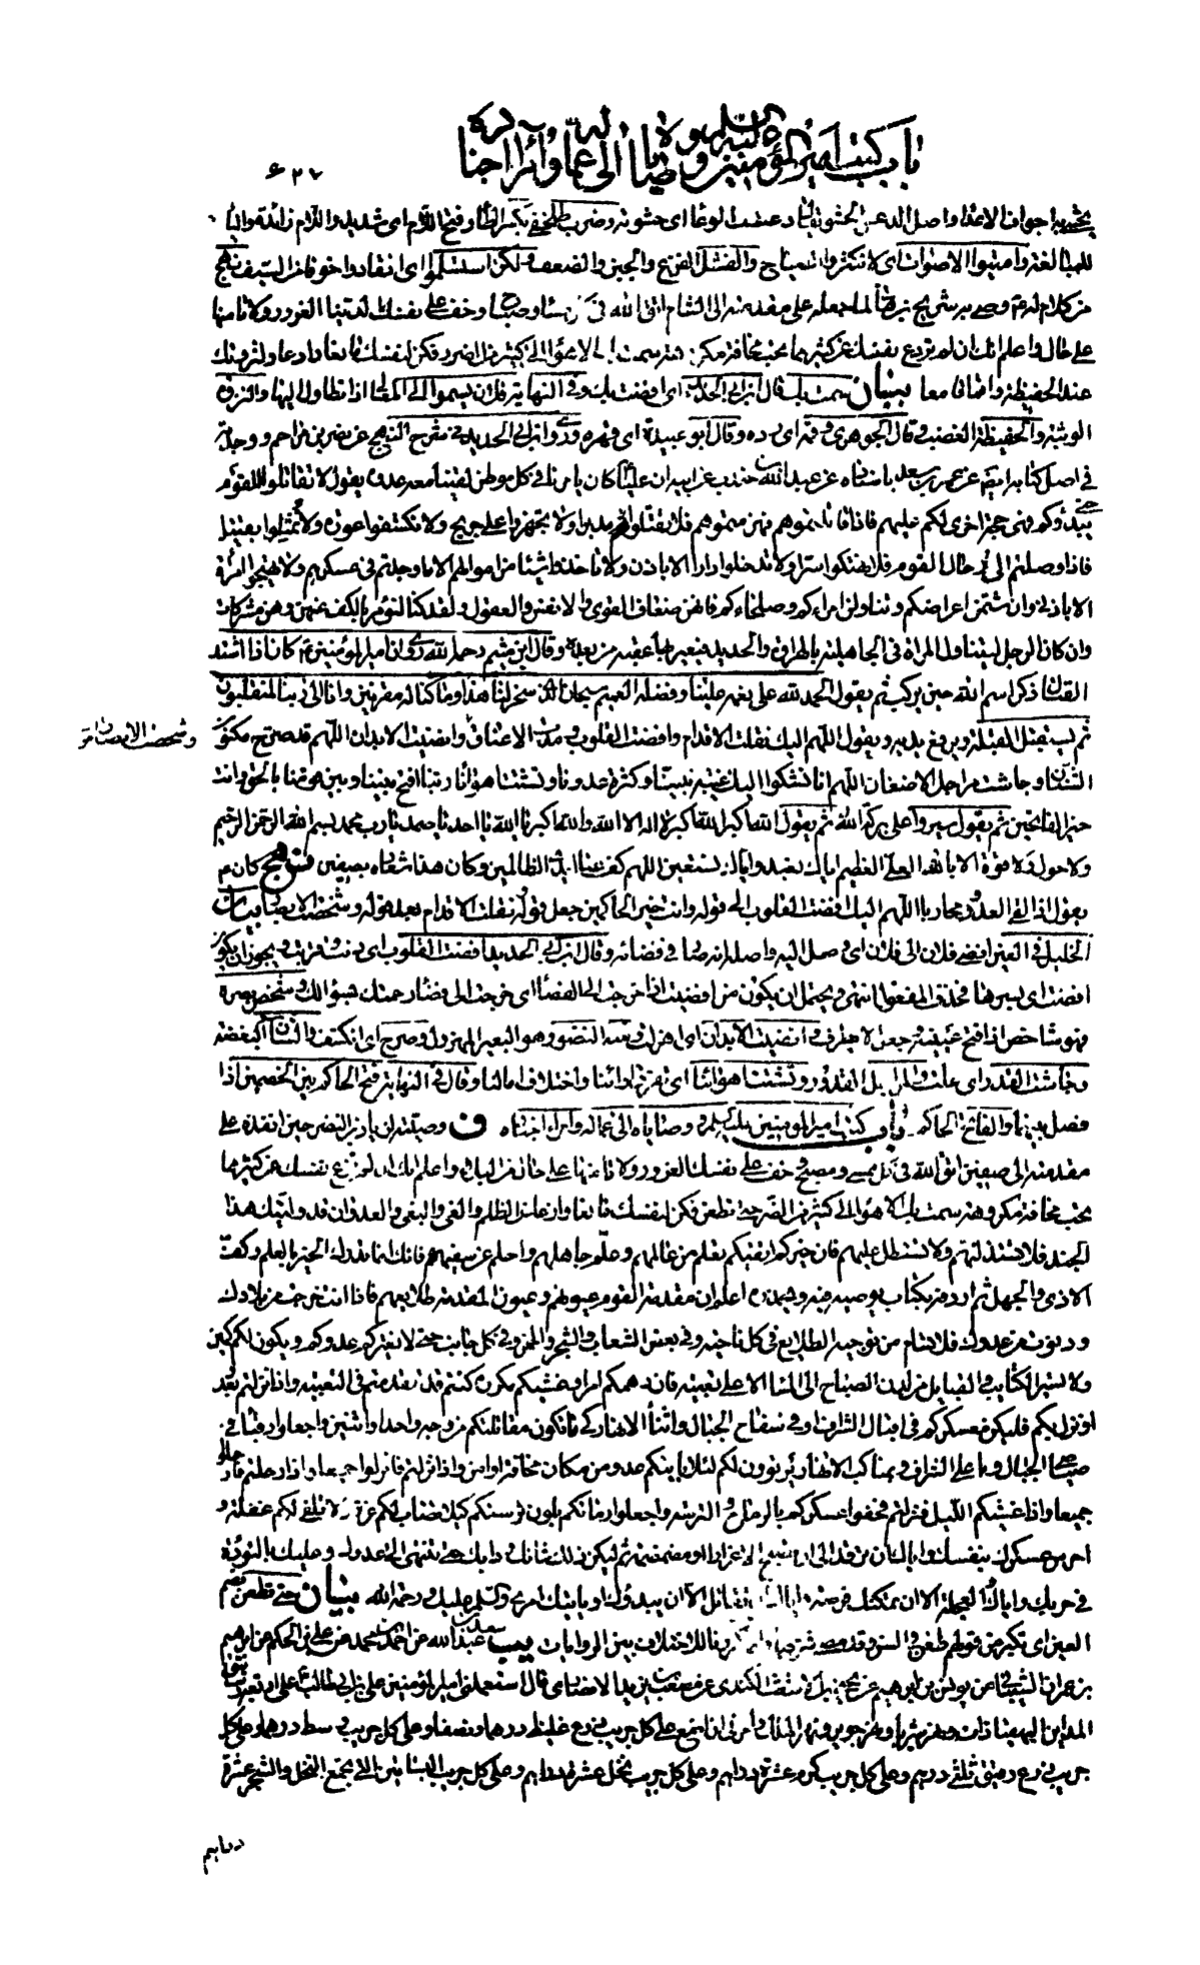 باب كتب امير المؤمنين عليه السلام ووصاياه الى عماله وأمراء اجناده
٦٢٧
للمبالغة وأميتوا الاصوات اى لا تكثروا الصياح والفشل الفزع والجبن والضعف ولكن استسلموا اى انقادوا خوفا من السيف نهج
من كلام له ع وصى به شريح بن هانى لما جعله على مقدمته الى الشام اتق الله فى كل مساء وصباح وخف على نفسك الدنيا الغرور ولا تأمنها
على حال واعلم انك ان لم تردع نفسك عن كثير مما تحب مخافة مكروهه سمت بك الاهواء الى كثير من الضرر فكن لنفسك مانعا رادعا ولنزوتك
عند الحفيظة واقما قامعا بيان سمت بك قال ابن ابى الحديد اى افضت بك وفى النهاية فلان يسمو الى المعالى اذا تطاول اليها والنزوة
الوثبة والحفيظة الغضب وقال الجوهرى وقمه اى رده وقال ابو عبيدة اى قهره وروى ابن ابى الحديد فى شرح النهج عن نصر بن مزاحم ووجدته
فى اصل كتابه ايضا عن عمر بن سعد باسناده عن عبد الله بن جندب عن ابيه ان عليا كان يأمرنا فى كل موطن لقينا معه عدوه يقول لا تقاتلوا القوم
حتى يبدؤكم فهى حجة اخرى لكم عليهم فاذا قاتلتموهم فهزمتموهم فلا تقتلوا مدبرا ولا تجهزوا على جريح ولا تكشفوا عورة ولا تمثلوا بقتيل
فاذا وصلتم الى رحال القوم فلا تهتكوا سترا ولا تدخلوا دارا الا باذن ولا تأخذوا شيئا من اموالهم الا ما وجدتم فى عسكرهم ولا تهيجوا امرأة
الا باذنى وان شتمن اعراضكم وتناولن امراءكم وصلحاءكم فانهن ضعاف القوى والانفس والعقول ولقد كنا لنؤمر بالكف عنهن وهن مشركات
وان كان الرجل ليتناول المرأة فى الجاهلية بالهراوة والحديد فيعير بها عقبه من بعده وقال ابن ميثم رحمه الله روى ان امير المؤمنين ع كان اذا اشتد
القتال ذكر اسم الله حين يركب ثم يقول الحمد لله على نعمه علينا وفضله العميم سبحان الذى سخر لنا هذا وما كنا له مقرنين وانا الى ربنا لمنقلبون
ثم يستقبل القبلة ويرفع يديه ويقول اللهم اليك نقلت الاقدام وافضت القلوب ومدت الاعناق وانضيت الابدان اللهم قد صرح مكنون
وشخصت الابصار
الشنآن وجاشت مراجل الاضغان اللهم انا نشكوا اليك غيبة نبينا وكثرة عدونا وتشتت اهوائنا ربنا افتح بيننا وبين قومنا بالحق وانت
خير الفاتحين ثم يقول سيروا على بركة الله ثم يقول الله اكبر الله اكبر لا اله الا الله والله اكبر يا الله يا احد يا صمد يا رب محمد بسم الله الرحمن الرحيم
ولا حول ولا قوة الا بالله العلى العظيم اياك نعبد واياك نستعين اللهم كف عنا ايدى الظالمين وكان هذا شعاره بصفين نهج كان ع
يقول اذا لقى العدو محاربا اللهم اليك افضت القلوب الى قوله وانت خير الفاتحين جعل قوله نقلت الاقدام بعد قوله وشخصت الابصار بيان
الخليل فى العين افضى فلان الى فلان اى وصل اليه واصله انه صار فى فضائه وقال ابن ابى الحديد افضت القلوب اى دنت وقربت ويجوز ان يكون
افضت اى بسرها فحذف المفعول انتهى ويحتمل ان يكون من افضيت اذا خرجت الى الفضاء اى خرجت الى فضاء رحمتك بسؤالك وشخص بصره
فهو شاخص اذا فتح عينيه وجعل لا يطرف وانضيت الابدان اى هزلت ومنه النضو وهو البعير المهزول وصرح اى انكشف والشنآن البغضة
وجاشت القدر اى غلت والمراجل القدور وتشتت اهوائنا اى تفرق آرائنا واختلاف امالنا وقال فى النهاية فتح الحاكم بين الخصمين اذا
فصل بينهما والفاتح الحاكم باب كتب امير المؤمنين عليه السلم ووصاياه الى عماله وامراء اجناده ف وصيته لزياد بن النضر حين انفذه على
مقدمته الى صفين اتق الله فى كل ممسى ومصبح وخف على نفسك الغرور ولا تأمنها على حال من البلاء واعلم انك ان لم تزع نفسك عن كثير مما
تحب مخافة مكروهه سمت بك الاهواء الى كثير من الضر حتى تظعن فكن لنفسك مانعا وازعا عن الظلم والغى والبغى والعدوان قد وليتك هذا
الجند فلا تستذلنهم ولا تستطل عليهم فان خيركم اتقيكم تعلم من عالمهم وعلم جاهلهم واحلم عن سفيههم فانك انما تدرك الخير بالعلم وكف
الاذى والجهل ثم اردفه بكتاب يوصيه فيه ويحذره اعلم ان مقدمة القوم عيونهم وعيون المقدمة طلايعهم فاذا انت خرجت من بلادك
ودنوت من عدوك فلا تسأم من توجيه الطلايع فى كل ناحية وفى بعض الشعاب والشجر والخمر وفى كل جانب حتى لا يغتركم عدوكم ويكون لكم كمين
ولا تسير الكتائب والقبايل من لدن الصباح الى المساء الا على تعبية فان دهمكم امر او غشيكم مكروه كنتم قد تقدمتم فى التعبية واذا نزلتم بعدو
او نزل بكم فليكن معسكركم فى اقبال الشراف او فى سفاح الجبال واثناء الانهار كى ما تكون مقاتلتكم من وجه واحد او اثنين واجعلوا رقباء فى
صياصى الجبال وباعلى الشراف وبمناكب الانهار يريئون لكم لئلا يأتيكم عدو من مكان مخافة او امن واذا نزلتم فانزلوا جميعا واذا رحلتم فارحلوا
جميعا واذا غشيكم الليل فنزلتم فحفوا عسكركم بالرماح والترسة واجعلوا رماتكم يلون ترستكم كيلا تصاب لكم غرة ولا تلقى لكم غفلة و
احرس عسكرك بنفسك واياك ان ترقد الى ان تصبح الا غرارا او مضمضة ثم ليكن ذلك شانك ودابك حتى تنتهى الى عدوك وعليك بالتؤدة
فى حربك واياك والعجلة الا ان تمكنك فرصة واياك ان تقاتل الا ان يبدؤك او ياتيك امرى والسلم عليك ورحمة الله بيان حتى تظعن
المداين البهقباذات ونهر شير ونهر جوير ونهر الملك وامرنى ان اضع على كل جريب زرع غليظ درهما ونصفا وعلى كل جريب وسط درهما وعلى كل
جريب زرع رقيق ثلثى درهم وعلى كل جريب كرم عشرة دراهم وعلى كل جريب نخل عشرة دراهم وعلى كل جريب البساتين التى تجمع النخل والشجر عشرة
دراهم